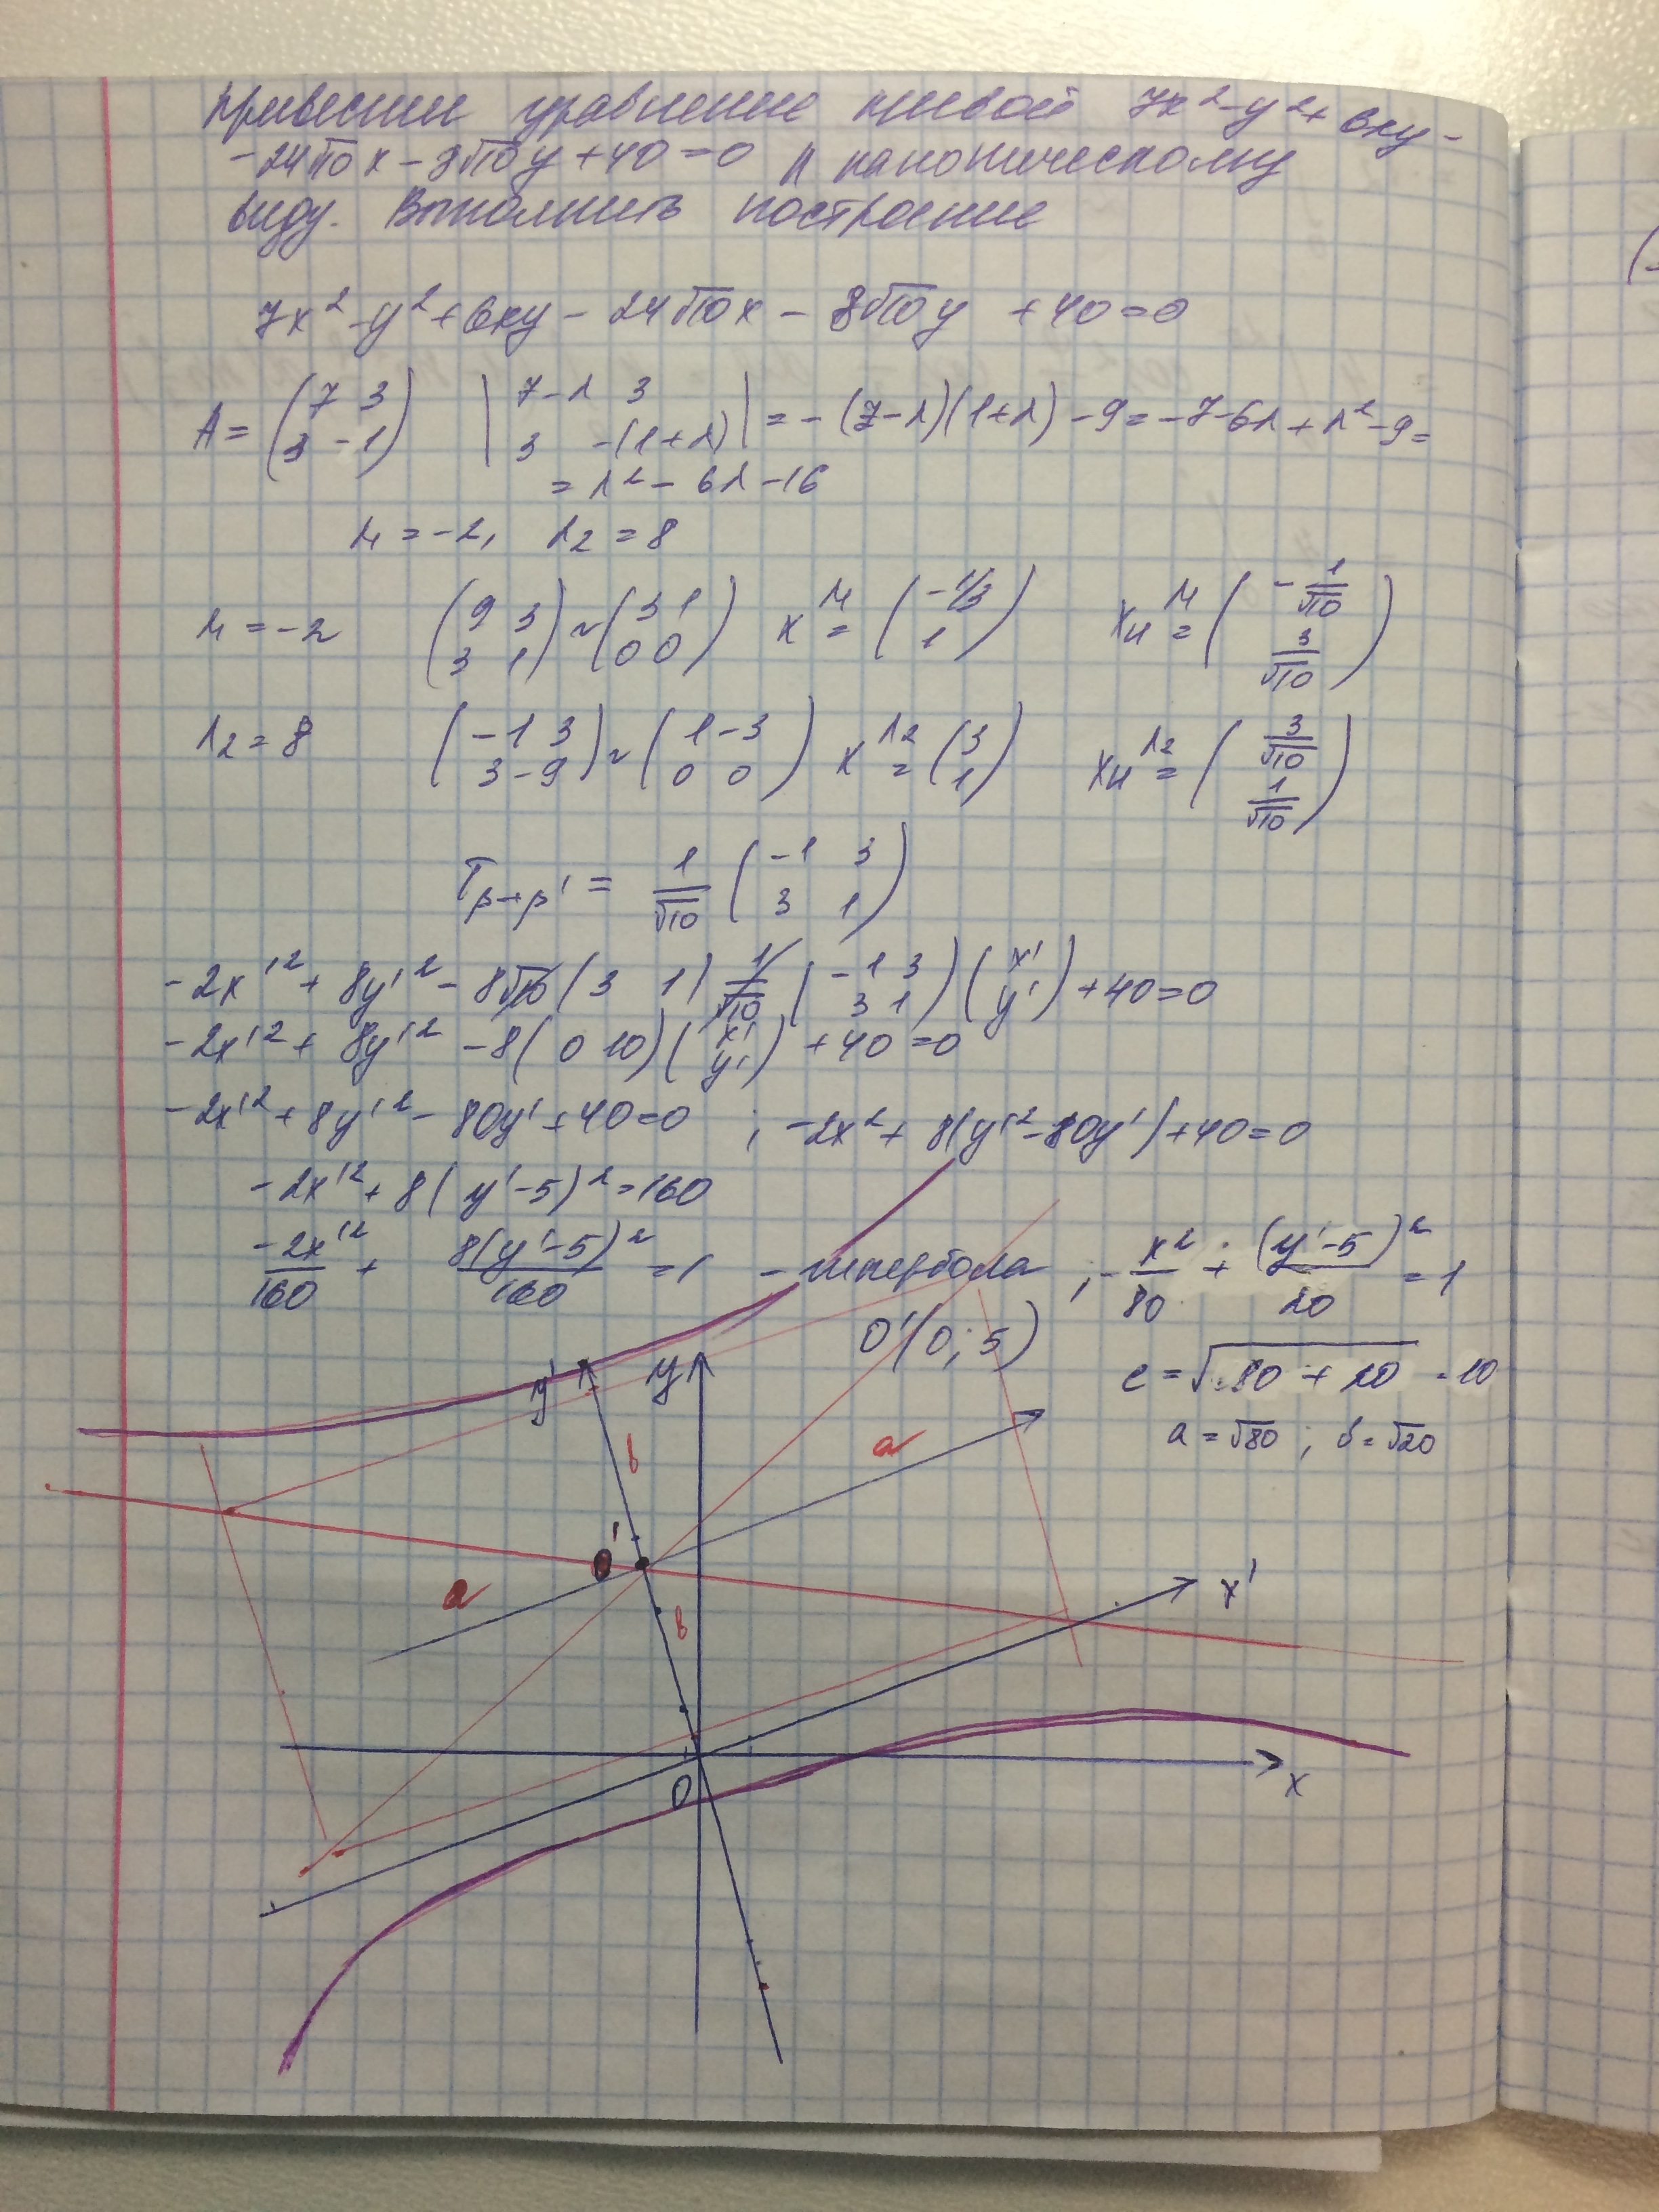 Привести уравнение кривой 7x²-y²+6xy-
-24√10x-8√10y+40=0 к каноническому
виду. Выполнить построение
7x²-y²+6xy-24√10x-8√10y+40=0
A=(7 3; 3 -1) |7-λ 3; 3 -(1+λ)|=-(7-λ)(1+λ)-9=-7-6λ+λ²-9=
=λ²-6λ-16
λ₁=-2, λ₂=8
λ₁=-2 (9 3; 3 1)~(3 1; 0 0) x^λ₁=(-1/3; 1) xн^λ₁=(-1/√10; 3/√10)
λ₂=8 (-1 3; 3 -9)~(1 -3; 0 0) x^λ₂=(3; 1) xн^λ₂=(3/√10; 1/√10)
Tβ→β'=1/√10(-1 3; 3 1)
-2x'²+8y'²-8√10(3 1)1/√10(-1 3; 3 1)(x'; y')+40=0
-2x'²+8y'²-8(0 10)(x'; y')+40=0
-2x'²+8y'²-80y'+40=0; -2x²+8(y'²-80y')+40=0
-2x'²+8(y'-5)²=160
-2x'²/160+8(y'-5)²/160=1 -гипербола; -x²/80+(y'-5)²/20=1
O'(0;5)
c=√80+20=10
a=√80; b=√20
y' y
b a
O'
a b
x'
O x